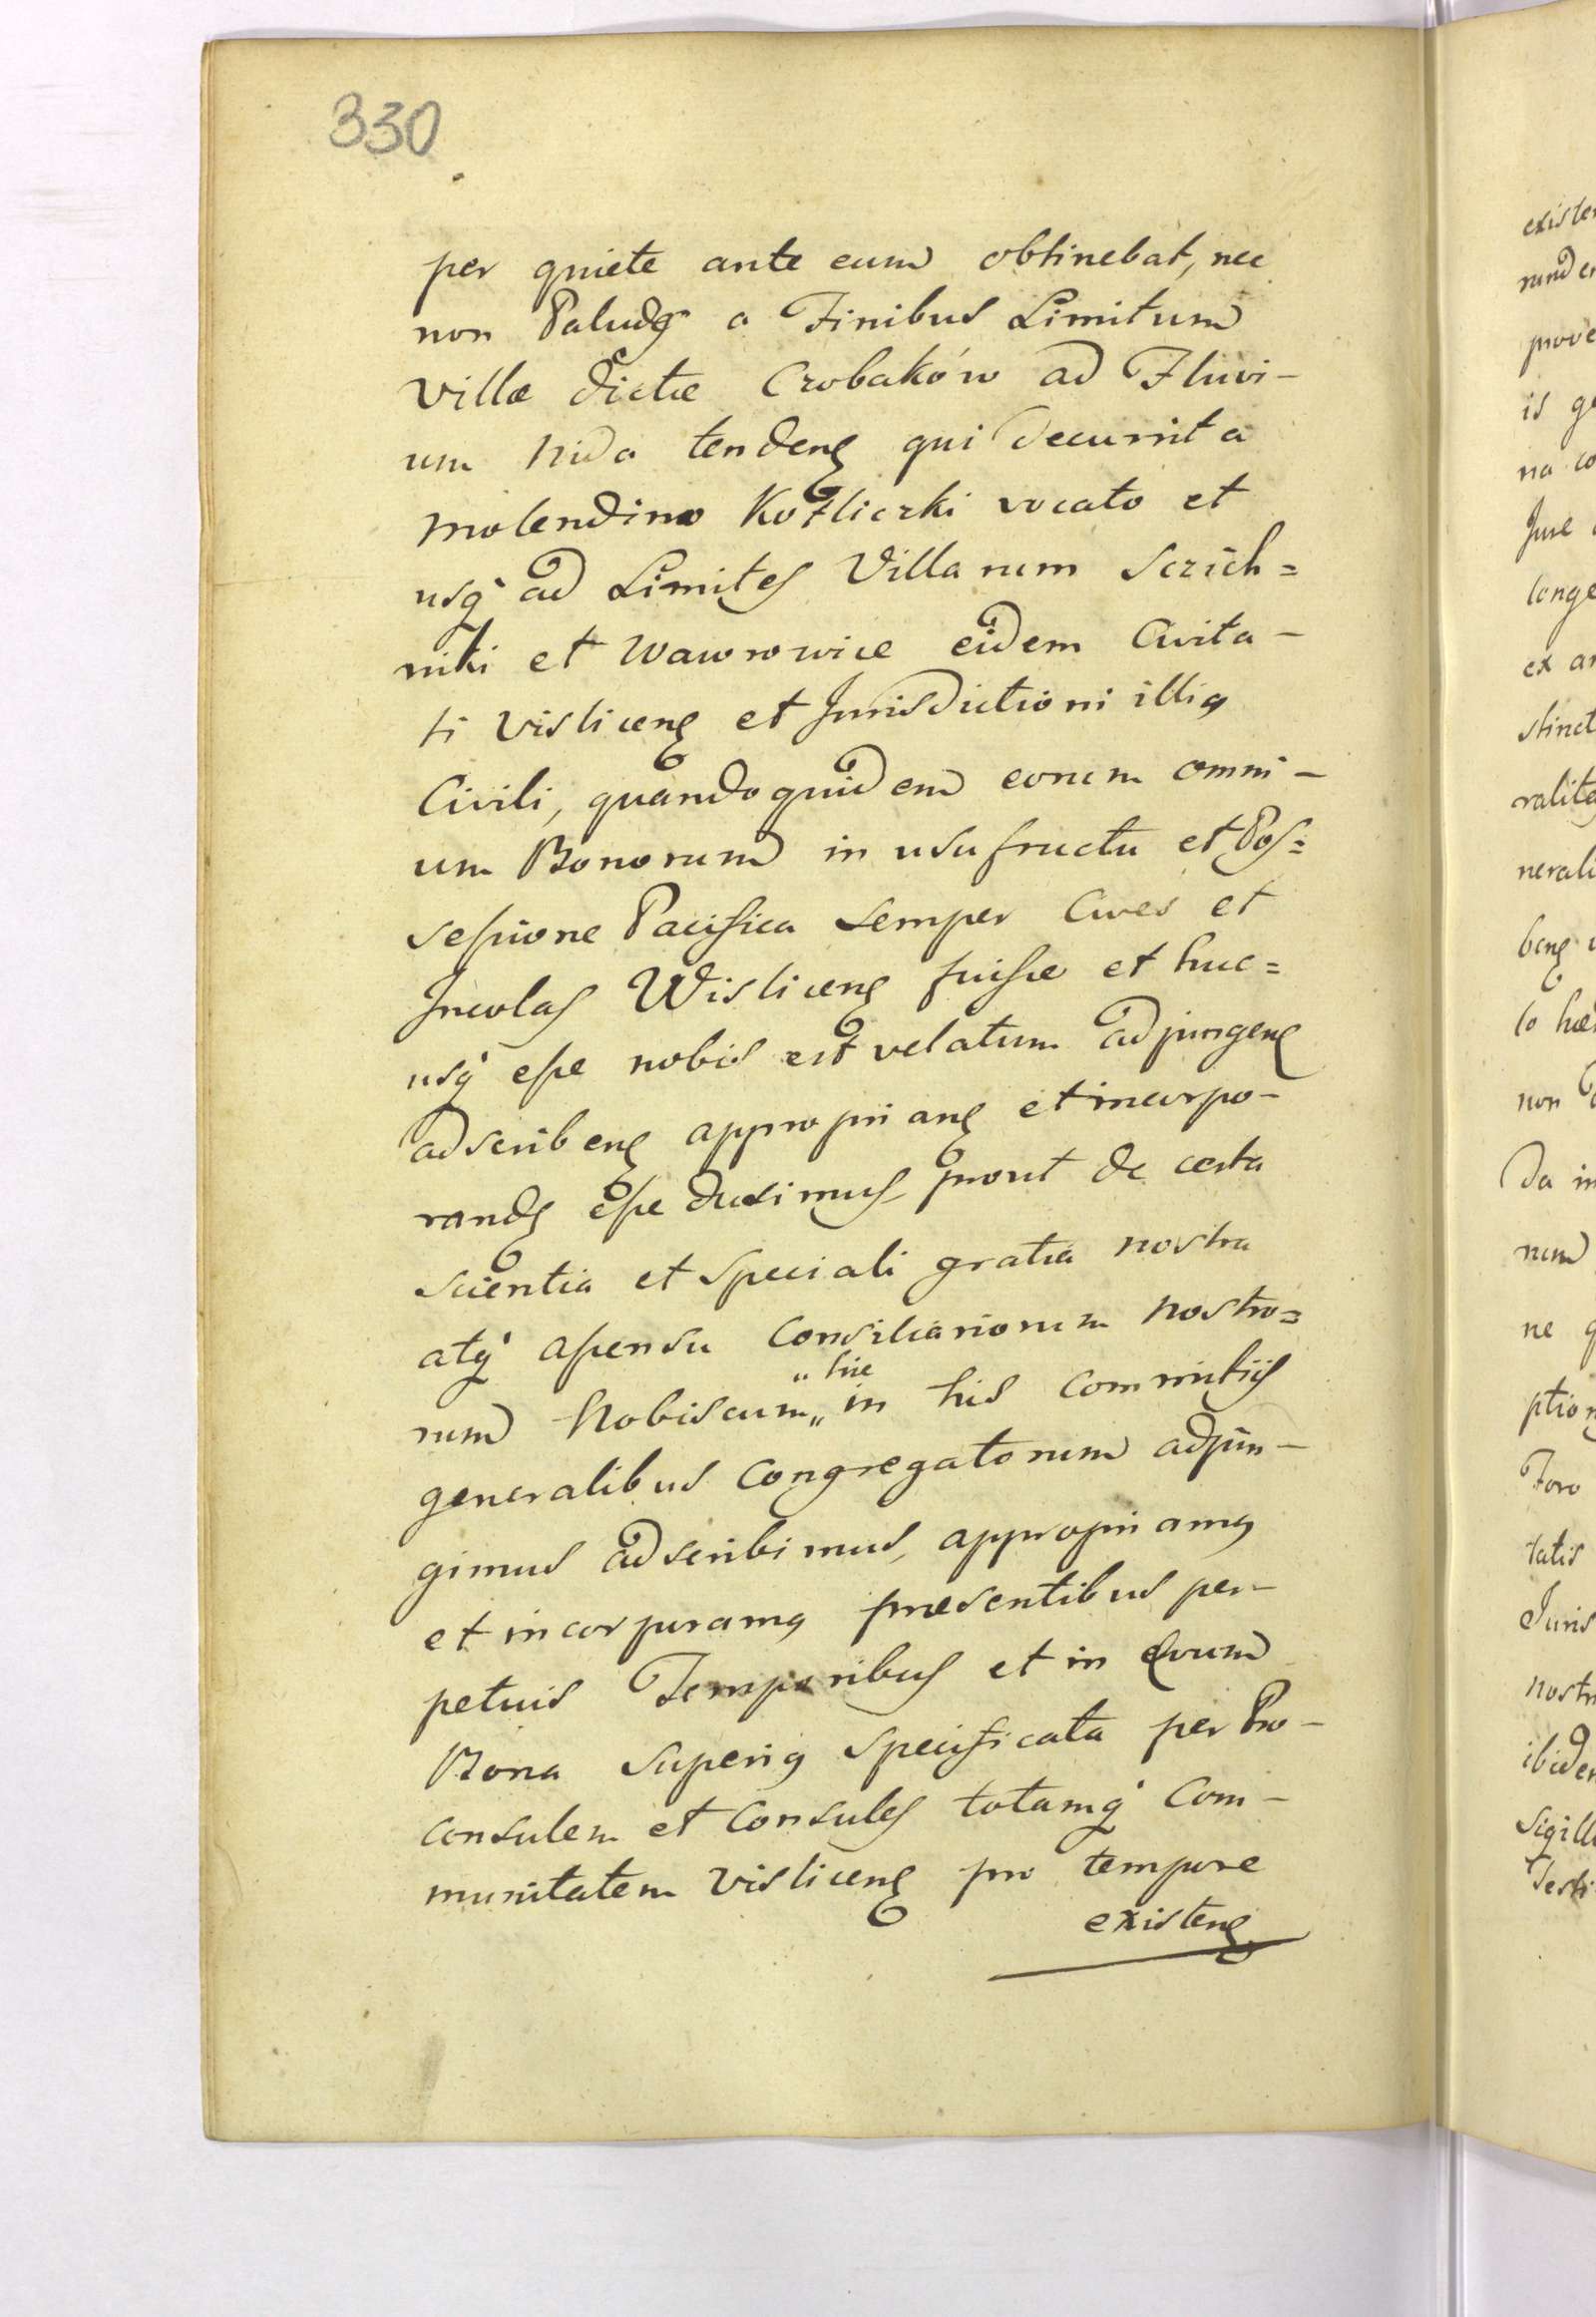 330
per quiete ante eum obtinebat, nec
non Paludꝭ a Finibus Limitum
Villæ dictæ Czobaków ad Fluvi-
um Nida tendenꝭ qui decurrit a
molendino Kotliczki vocato et
usq̃ ad Limites Villarum Sczich=
niki et Wawrowice eidem Civita-
ti Vislicenꝭ et Jurisdictioni illiꝯ
Civili, quandoquidem eorum omni-
um Bonorum in usufructu et Pos=
sessione Pacifica semper Cives et
Incolas Wislicenꝭ fuisse et huc=
usq̃ esse nobis est relatum adjungenꝭ
adscribenꝭ approprianꝭ et incorpo-
randꝭ esse duximus prout de certa
scientia et speciali gratia nostra
atq̃ assensu Consiliariorum nostro=
„hic
rum Nobiscum„ in his commitiis
generalibus Congregatorum adjun-
gimus adscribimus, appropriamꝯ
et incorporamꝯ præsentibus per-
petuis Temporibus et in Ævum
Bona superiꝯ specificata per Pro-
consulem et Consules totamq̃ Com-
munitatem Vislicenꝭ pro tempore
existenꝭ